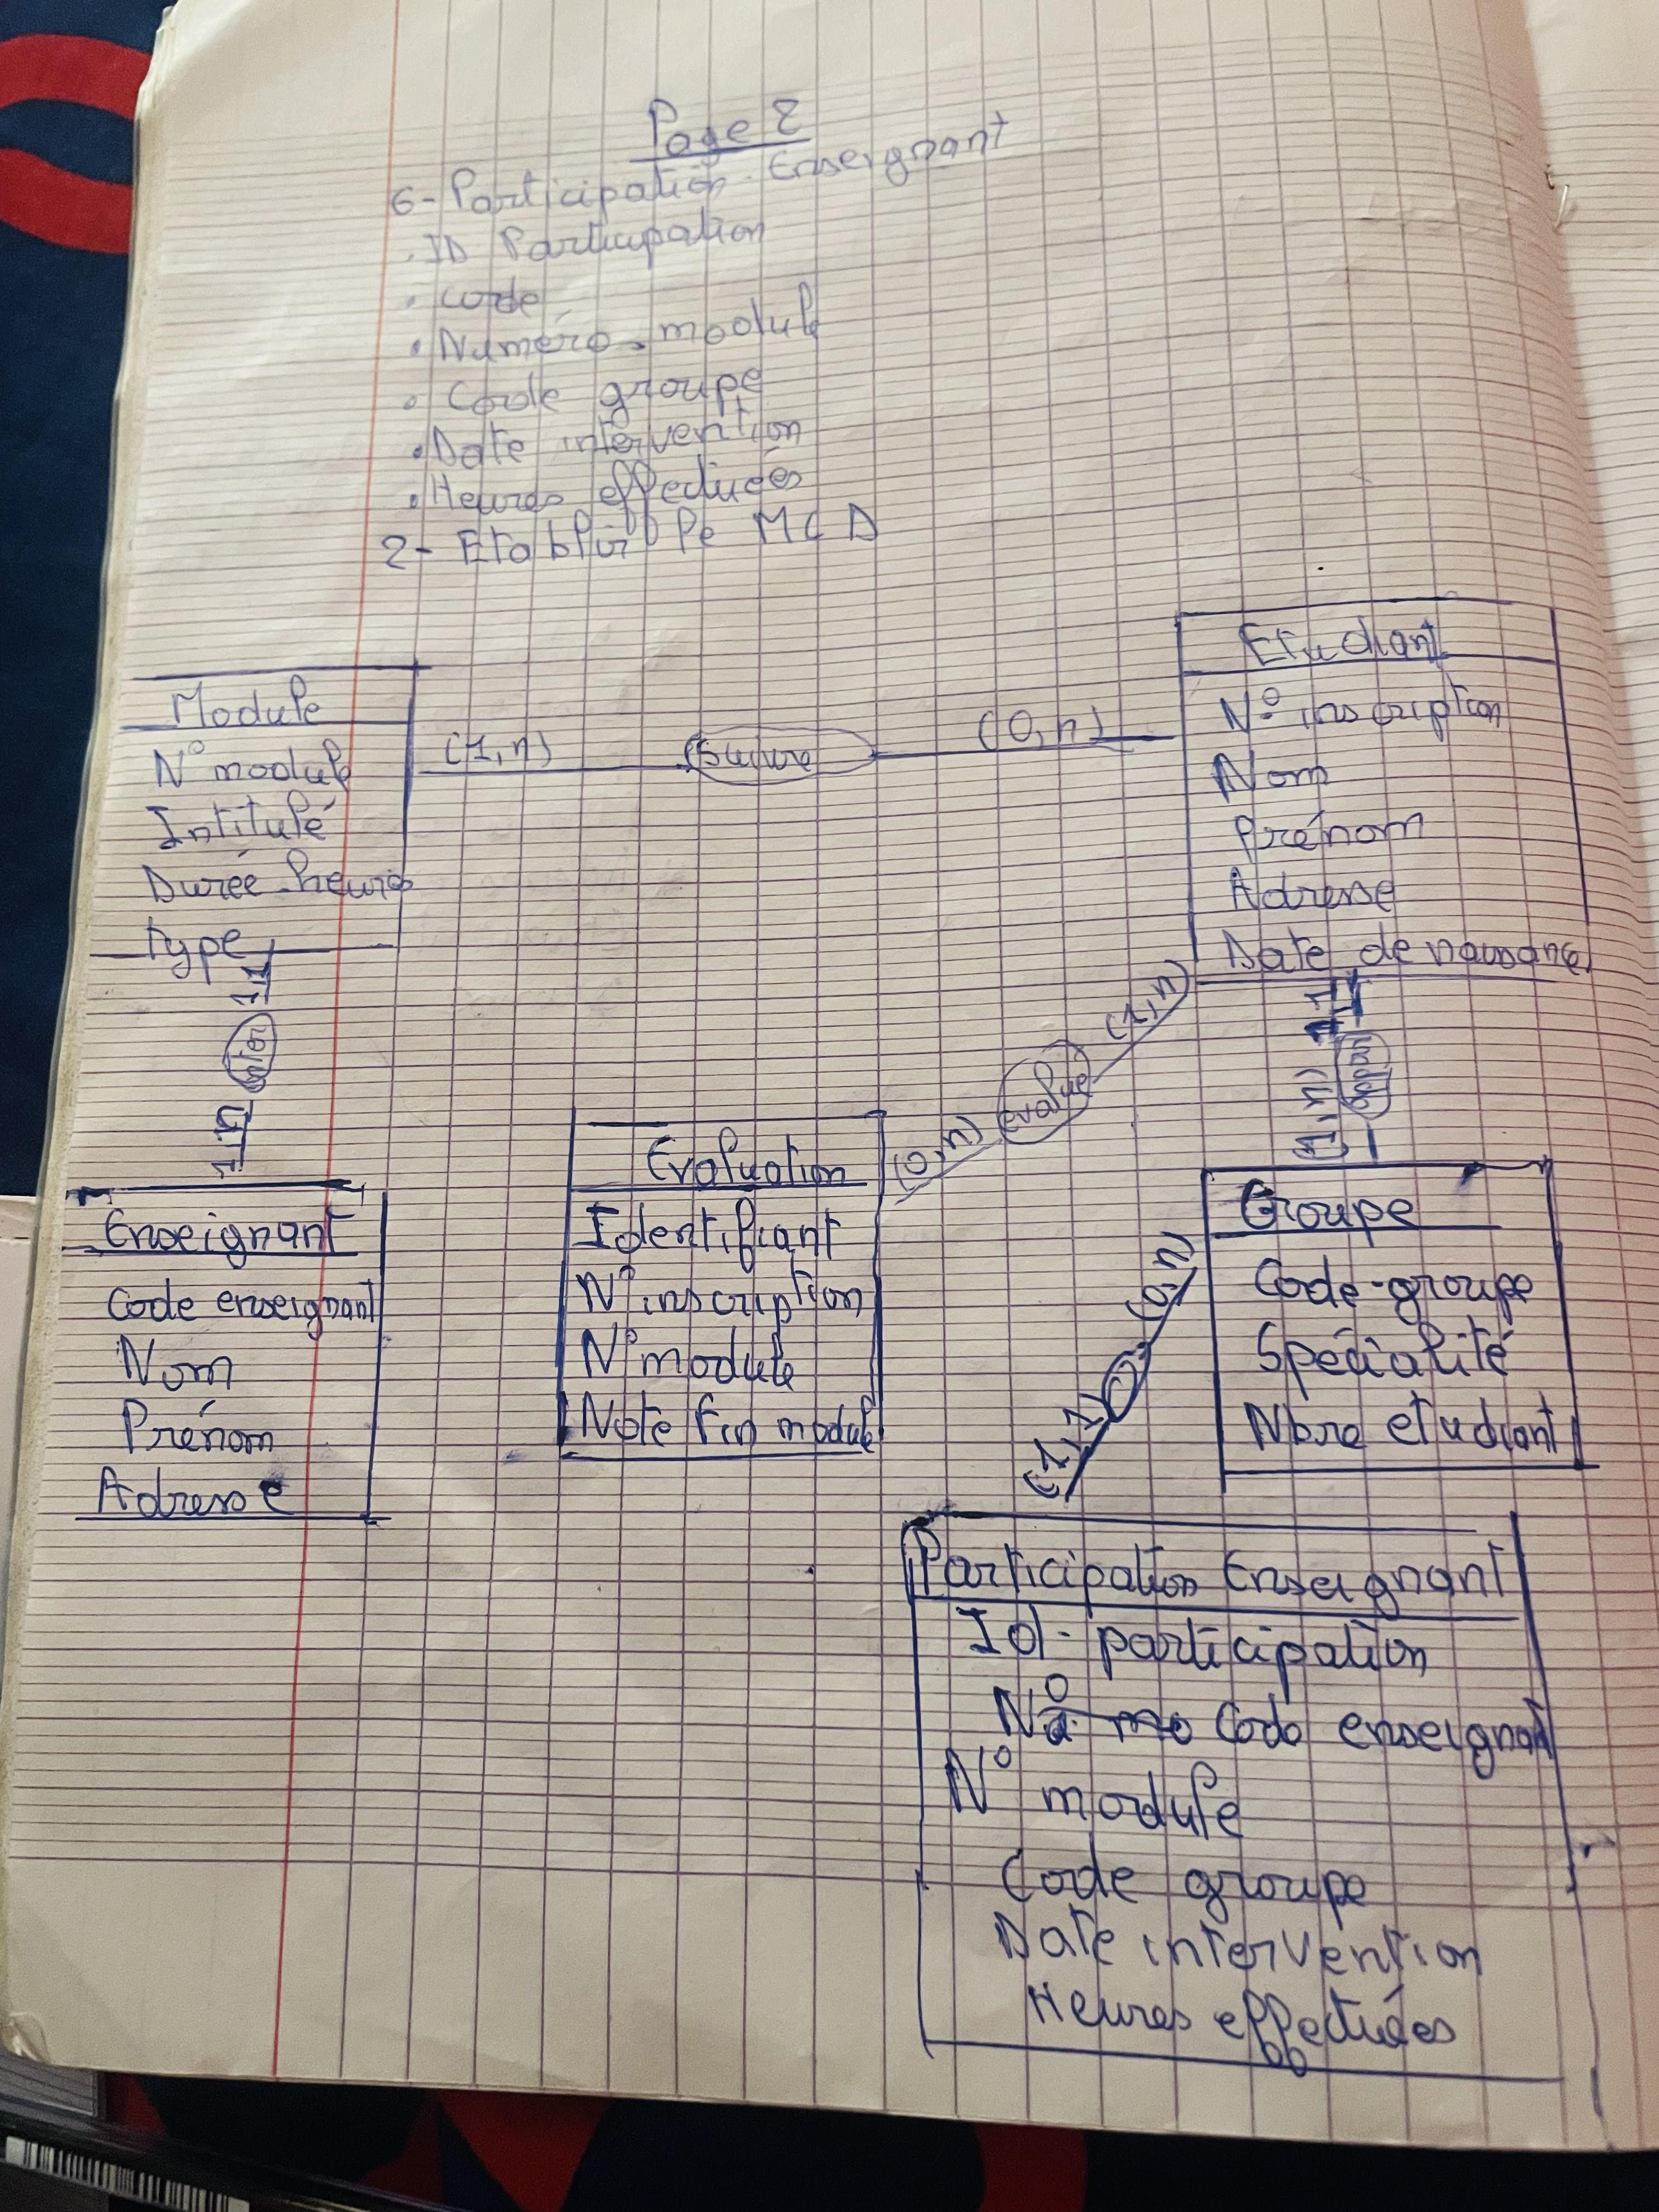 Page 2
6- Participation - Enseignant
. ID Participation
. Code
. Numéro - module
. Code groupe
. Date intervention
. Heures effectuées
2- Etablir le MCD
Module
N° module
Intitulé
Durée - heures
type
(1,n)
Suivre
(0,n)
Etudiant
N° inscription
Nom
Prénom
Adresse
Date de naissance
1,1
1,n
(0,n)
evalue
(1,n)
1,1
appart
(1,n)
Enseignant
Code enseignant
Nom
Prénom
Adresse
Evaluation
Identifiant
N° inscription
N° module
Note fin module
Groupe
Code - groupe
Spécialité
Nbre etudiant
(0,n)
(1,1)
Participation Enseignant
Id - participation
Code enseignant
N° module
Code groupe
Date intervention
Heures effectuées